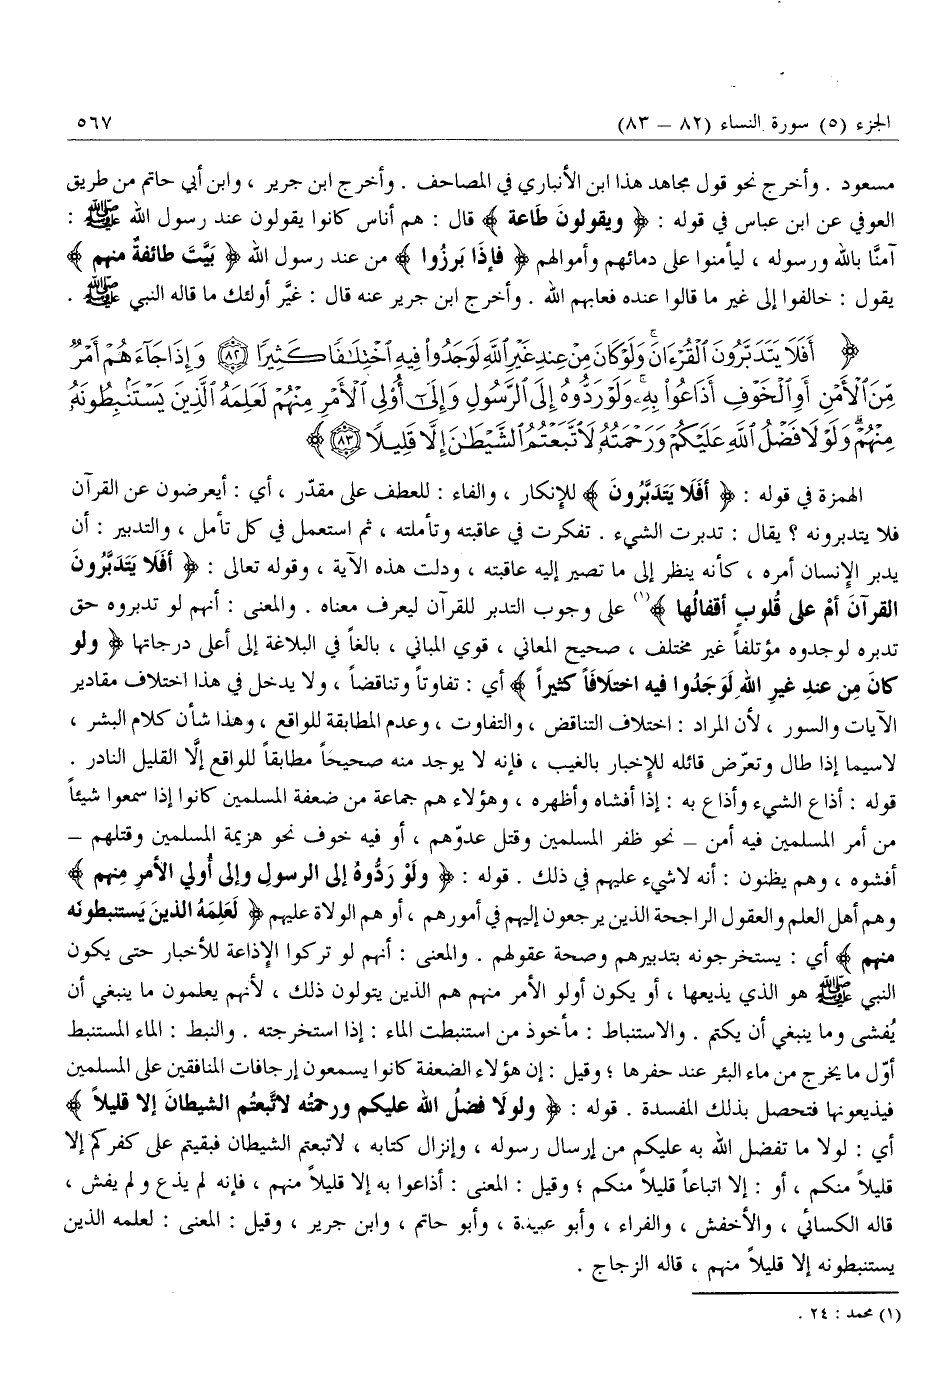 الجزء (٥) سورة النساء (٨٢ – ٨٣) ٥٦٧
مسعود . وأخرج نحو قول مجاهد هذا ابن الأنباري في المصاحف . وأخرج ابن جرير ، وابن أبي حاتم من طريق
العوفي عن ابن عباس في قوله : ﴿ ويقولونَ طَاعة ﴾ قال : هم أناس كانوا يقولون عند رسول الله ﷺ :
آمنَّا بالله ورسوله ، ليأمنوا على دمائهم وأموالهم ﴿ فإذَا بَرزُوا ﴾ من عند رسول الله ﴿ بَيَّتَ طائفةٌ منهم ﴾
يقول : خالفوا إلى غير ما قالوا عنده فعابهم الله . وأخرج ابن جرير عنه قال : غيَّر أولئك ما قاله النبي ﷺ .
﴿ أَفَلَا يَتَدَبَّرُونَ ٱلْقُرْءَانَ ۚ وَلَوْ كَانَ مِنْ عِندِ غَيْرِ ٱللَّهِ لَوَجَدُوا۟ فِيهِ ٱخْتِلَٰفًا كَثِيرًا ٨٢ وَإِذَا جَآءَهُمْ أَمْرٌ
مِّنَ ٱلْأَمْنِ أَوِ ٱلْخَوْفِ أَذَاعُوا۟ بِهِۦ ۖ وَلَوْ رَدُّوهُ إِلَى ٱلرَّسُولِ وَإِلَىٰٓ أُو۟لِى ٱلْأَمْرِ مِنْهُمْ لَعَلِمَهُ ٱلَّذِينَ يَسْتَنۢبِطُونَهُۥ
مِنْهُمْ ۗ وَلَوْلَا فَضْلُ ٱللَّهِ عَلَيْكُمْ وَرَحْمَتُهُۥ لَٱتَّبَعْتُمُ ٱلشَّيْطَٰنَ إِلَّا قَلِيلًا ٨٣ ﴾
الهمزة في قوله : ﴿ أفَلَا يَتَدَبَّرُونَ ﴾ للإنكار ، والفاء : للعطف على مقدّر ، أي : أيعرضون عن القرآن
فلا يتدبرونه ؟ يقال : تدبرت الشيء . تفكرت في عاقبته وتأملته ، ثم استعمل في كل تأمل ، والتدبير : أن
يدبر الإنسان أمره ، كأنه ينظر إلى ما تصير إليه عاقبته ، ودلت هذه الآية ، وقوله تعالى : ﴿ أفَلَا يَتَدبَّرُونَ
القرآنَ أمْ على قُلوبٍ أقفالُها ﴾(١) على وجوب التدبر للقرآن ليعرف معناه . والمعنى : أنهم لو تدبروه حق
تدبره لوجدوه مؤتلفاً غير مختلف ، صحيح المعاني ، قوي المباني ، بالغاً في البلاغة إلى أعلى درجاتها ﴿ ولو
كانَ مِن عندِ غيرِ اللهِ لَوَجَدُوا فيه اختلَافَاً كثيراً ﴾ أي : تفاوتاً وتناقضاً ، ولا يدخل في هذا اختلاف مقادير
الآيات والسور ، لأن المراد : اختلاف التناقض ، والتفاوت ، وعدم المطابقة للواقع ، وهذا شأن كلام البشر ،
لاسيما إذا طال وتعرّض قائله للإخبار بالغيب ، فإنه لا يوجد منه صحيحاً مطابقاً للواقع إلّا القليل النادر .
قوله : أذاع الشيء وأذاع به : إذا أفشاه وأظهره ، وهؤلاء هم جماعة من ضعفة المسلمين كانوا إذا سمعوا شيئاً
من أمر المسلمين فيه أمن – نحو ظفر المسلمين وقتل عدوّهم ، أو فيه خوف نحو هزيمة المسلمين وقتلهم –
أفشوه ، وهم يظنون : أنه لاشيء عليهم في ذلك . قوله : ﴿ ولَوْ رَدُّوهُ إلى الرسولِ وإلى أُولي الأمرِ مِنهم ﴾
وهم أهل العلم والعقول الراجحة الذين يرجعون إليهم في أمورهم ، أو هم الولاة عليهم ﴿ لَعَلِمَهُ الذينَ يَستنبطونَه
منهم ﴾ أي : يستخرجونه بتدبيرهم وصحة عقولهم . والمعنى : أنهم لو تركوا الإذاعة للأخبار حتى يكون
النبي ﷺ هو الذي يذيعها ، أو يكون أولو الأمر منهم هم الذين يتولون ذلك ، لأنهم يعلمون ما ينبغي أن
يُفشى وما ينبغي أن يكتم . والاستنباط : مأخوذ من استنبطت الماء : إذا استخرجته . والنبط : الماء المستنبط
أوّل ما يخرج من ماء البئر عند حفرها ؛ وقيل : إن هؤلاء الضعفة كانوا يسمعون إرجافات المنافقين على المسلمين
فيذيعونها فتحصل بذلك المفسدة . قوله : ﴿ ولولَا فضلُ الله عليكم ورحمتُه لاتَّبعتُم الشيطانَ إلا قليلاً ﴾
أي : لولا ما تفضل الله به عليكم من إرسال رسوله ، وإنزال كتابه ، لاتبعتم الشيطان فبقيتم على كفركم إلا
قليلاً منكم ، أو : إلا اتباعاً قليلاً منكم ؛ وقيل : المعنى : أذاعوا به إلا قليلاً منهم ، فإنه لم يذع ولم يفش ،
قاله الكسائي ، والأخفش ، والفراء ، وأبو عبيدة ، وأبو حاتم ، وابن جرير ، وقيل : المعنى : لعلمه الذين
يستنبطونه إلا قليلاً منهم ، قاله الزجاج .
(١) محمد : ٢٤ .